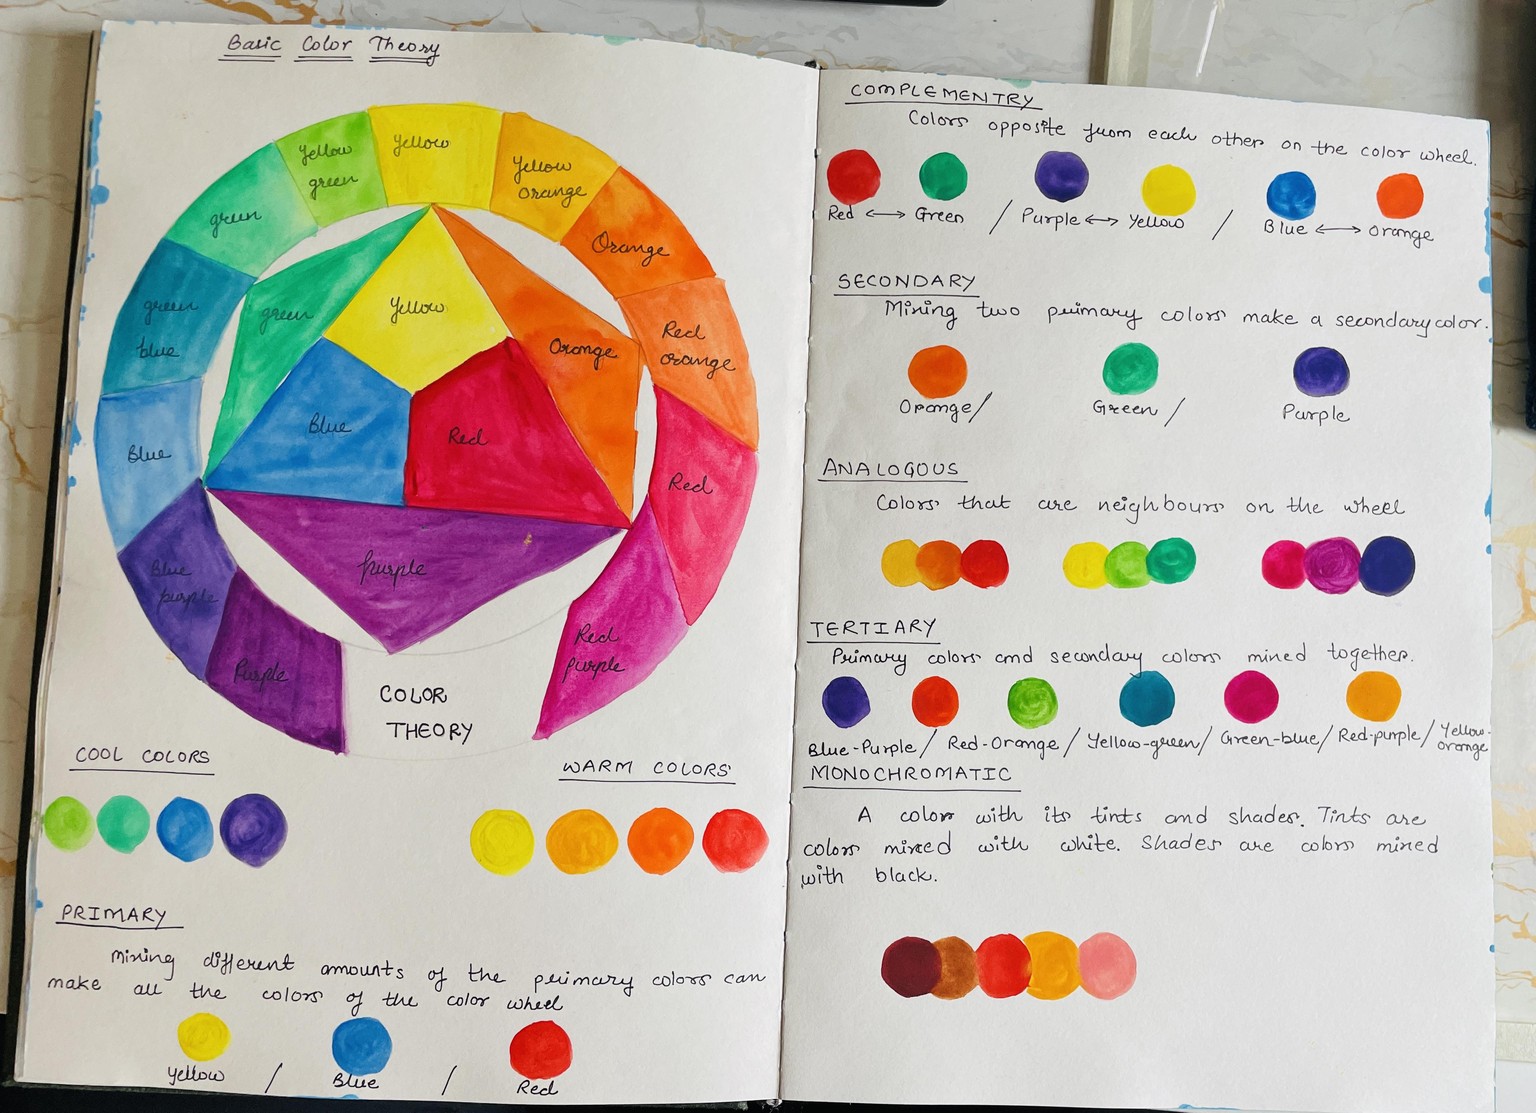 Basic Color Theory
Yellow
Yellow
green
Yellow
orange
green
Orange
green
blue
Red
orange
Blue
Red
Blue
purple
Red
purple
Purple
Yellow
green
Orange
Blue
Red
purple
COLOR
THEORY
COOL COLORS
WARM COLORS
PRIMARY
Mixing different amounts of the primary colors can
make all the colors of the color wheel
Yellow / Blue / Red
COMPLEMENTRY
Colors opposite from each other on the color wheel.
Red ⟷ Green / Purple ⟷ Yellow / Blue ⟷ Orange
SECONDARY
Mixing two primary colors make a secondary color.
Orange / Green / Purple
ANALOGOUS
Colors that are neighbours on the wheel
TERTIARY
Primary colors and secondary colors mixed together.
Blue-Purple / Red-Orange / Yellow-green / Green-blue / Red-purple / Yellow-
orange
MONOCHROMATIC
A color with its tints and shades. Tints are
colors mixed with white. Shades are colors mixed
with black.